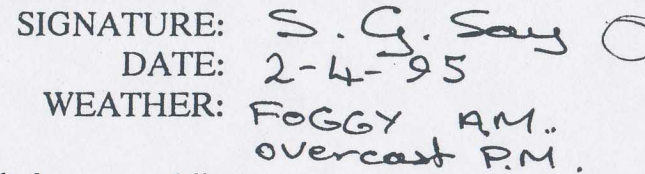 SIGNATURE: S. G. Say
DATE: 2-4-95
WEATHER: FOGGY A.M..
overcast P.M.